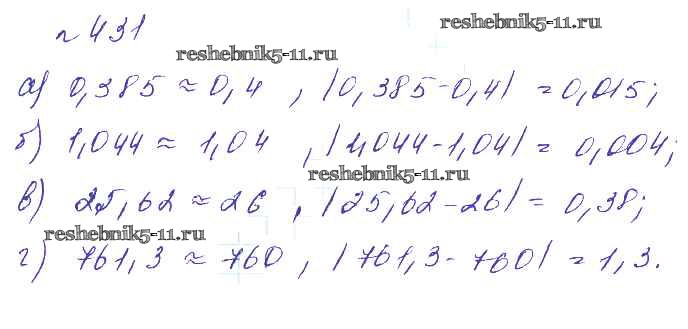 №431
reshebnik5-11.ru
reshebnik5-11.ru
а) 0,385 ≈ 0,4 , |0,385-0,4| = 0,015;
б) 1,044 ≈ 1,04 , |1,044-1,04| = 0,004;
reshebnik5-11.ru
в) 25,62 ≈ 26 , |25,62-26| = 0,38;
reshebnik5-11.ru
г) 761,3 ≈ 760 , |761,3-760| = 1,3.